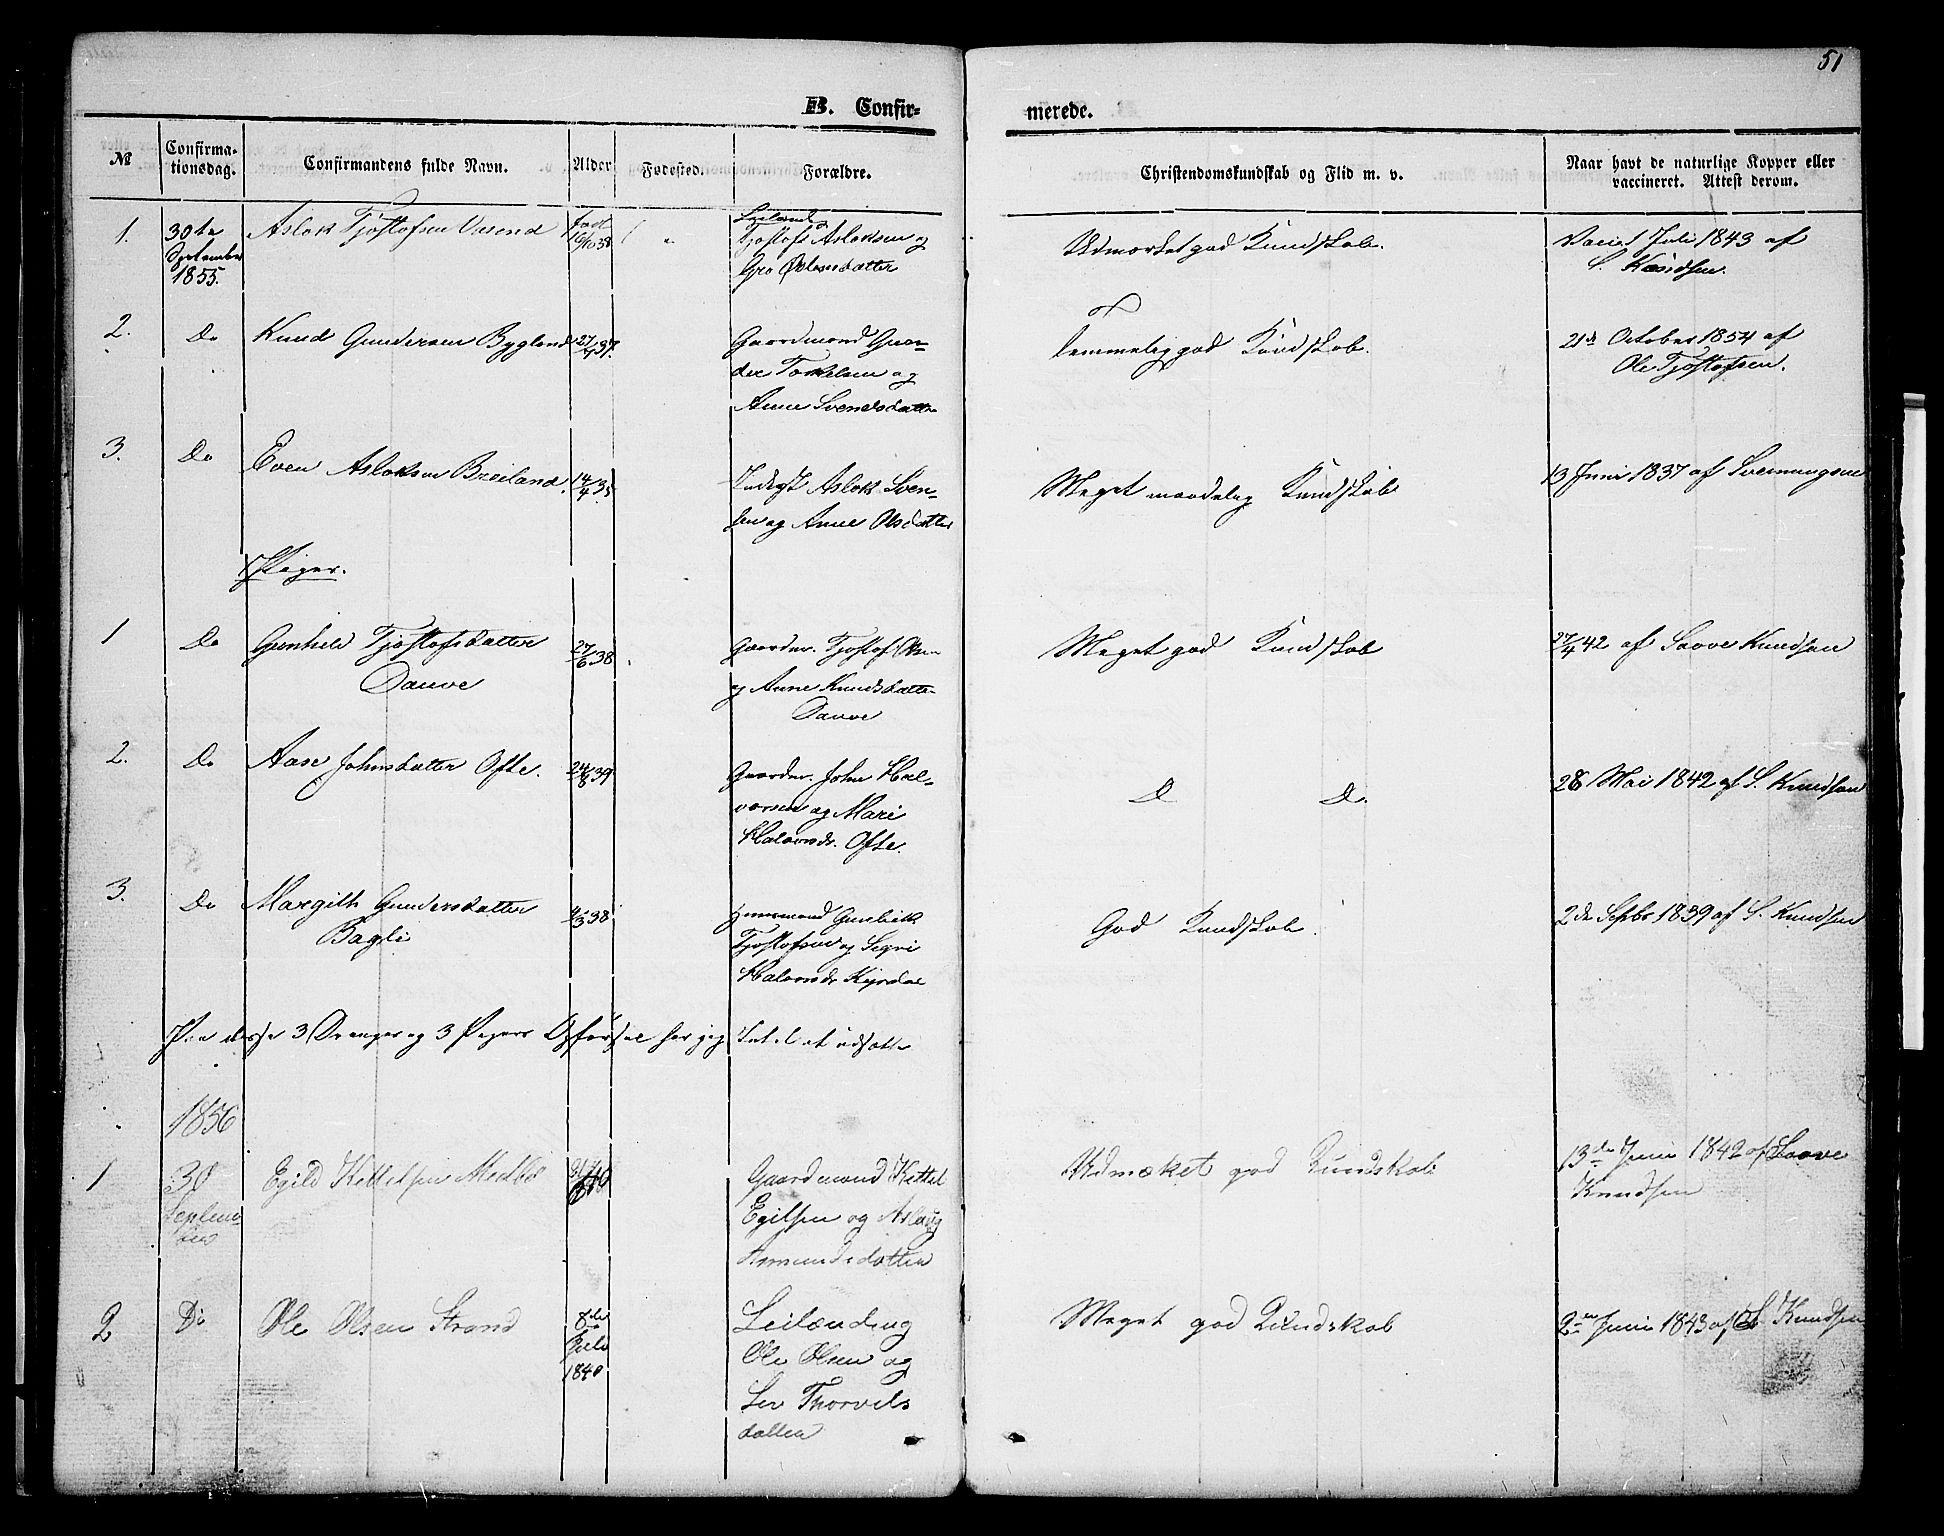 51
B. Confir-
merede.
№
Confirma-
tionsdag.
Confirmandens fulde Navn.
Alder
Fødested.
Forældre.
Christendomskundskab og Flid m. v.
Naar havt de naturlige Kopper eller
vaccineret. Attest derom.
1.
30te
September
1855.
Aslak Tjøstofsen Vasend
født
16/10 38
Tjøstofs Aslaksen og
Gro
Udmærket god Kundskab.
Vacie 1 Juli 1843 af
S. Knudsen.
2.
Do
Knud Gundersen Bygland
27/4 37.
Gaardmand Gun-
der Torkelsen og
Anne Svendsdatter
Temmelig god Kundskab.
21de October 1854 af
Ole Tjøstofsen.
3.
Do
Even Aslaksen Breiland.
14/4 35
Inderst Aslak Sven-
sen og Anne Olsdatter
Meget maadelig Kundskab
13 Juni 1837 af Svenungsen
Piger.
1
Do
Gunhild Tjøstofsdatter
Dauve
27/6 38
Gaardm. Tjøstof
og Anne Knudsdatter
Dauve
Meget god Kundskab
27/4 42 af Saave Knudsen
2.
Do
Aase Johnsdatter Ofte.
24/8 39
Gaardm. John Hal-
vorsen og Mari
Halvorsdr. Ofte.
D D.
28 Mai 1842 af S. Knudsen
3.
Do
Margith Gundersdatter
Bagli
3 38
Huusmand Gunleik
Tjøstofsen og Sigri
Halvorsdr
God Kundskab.
2de Septbr 1839 af S. Knudsen
Paa disse 3 Drenger og 3 Pigers Opførsel har jeg Intet at udsætte
1856
1
30
Septem-
ber
Egild Kittelsen Medbø
Gaardmand Kittel
Egilsen og Aslaug
Asmundsdatter
Udmæket god Kundskab
13de Juni 1842 af Saave
Knudsen
2
Do
Ole Olsen Strand
8de
1840
Leilænding
Ole Olsen og
Liv Thorvils
datter
Meget god Kundskab
2den Juni 1843 af S Knudsen